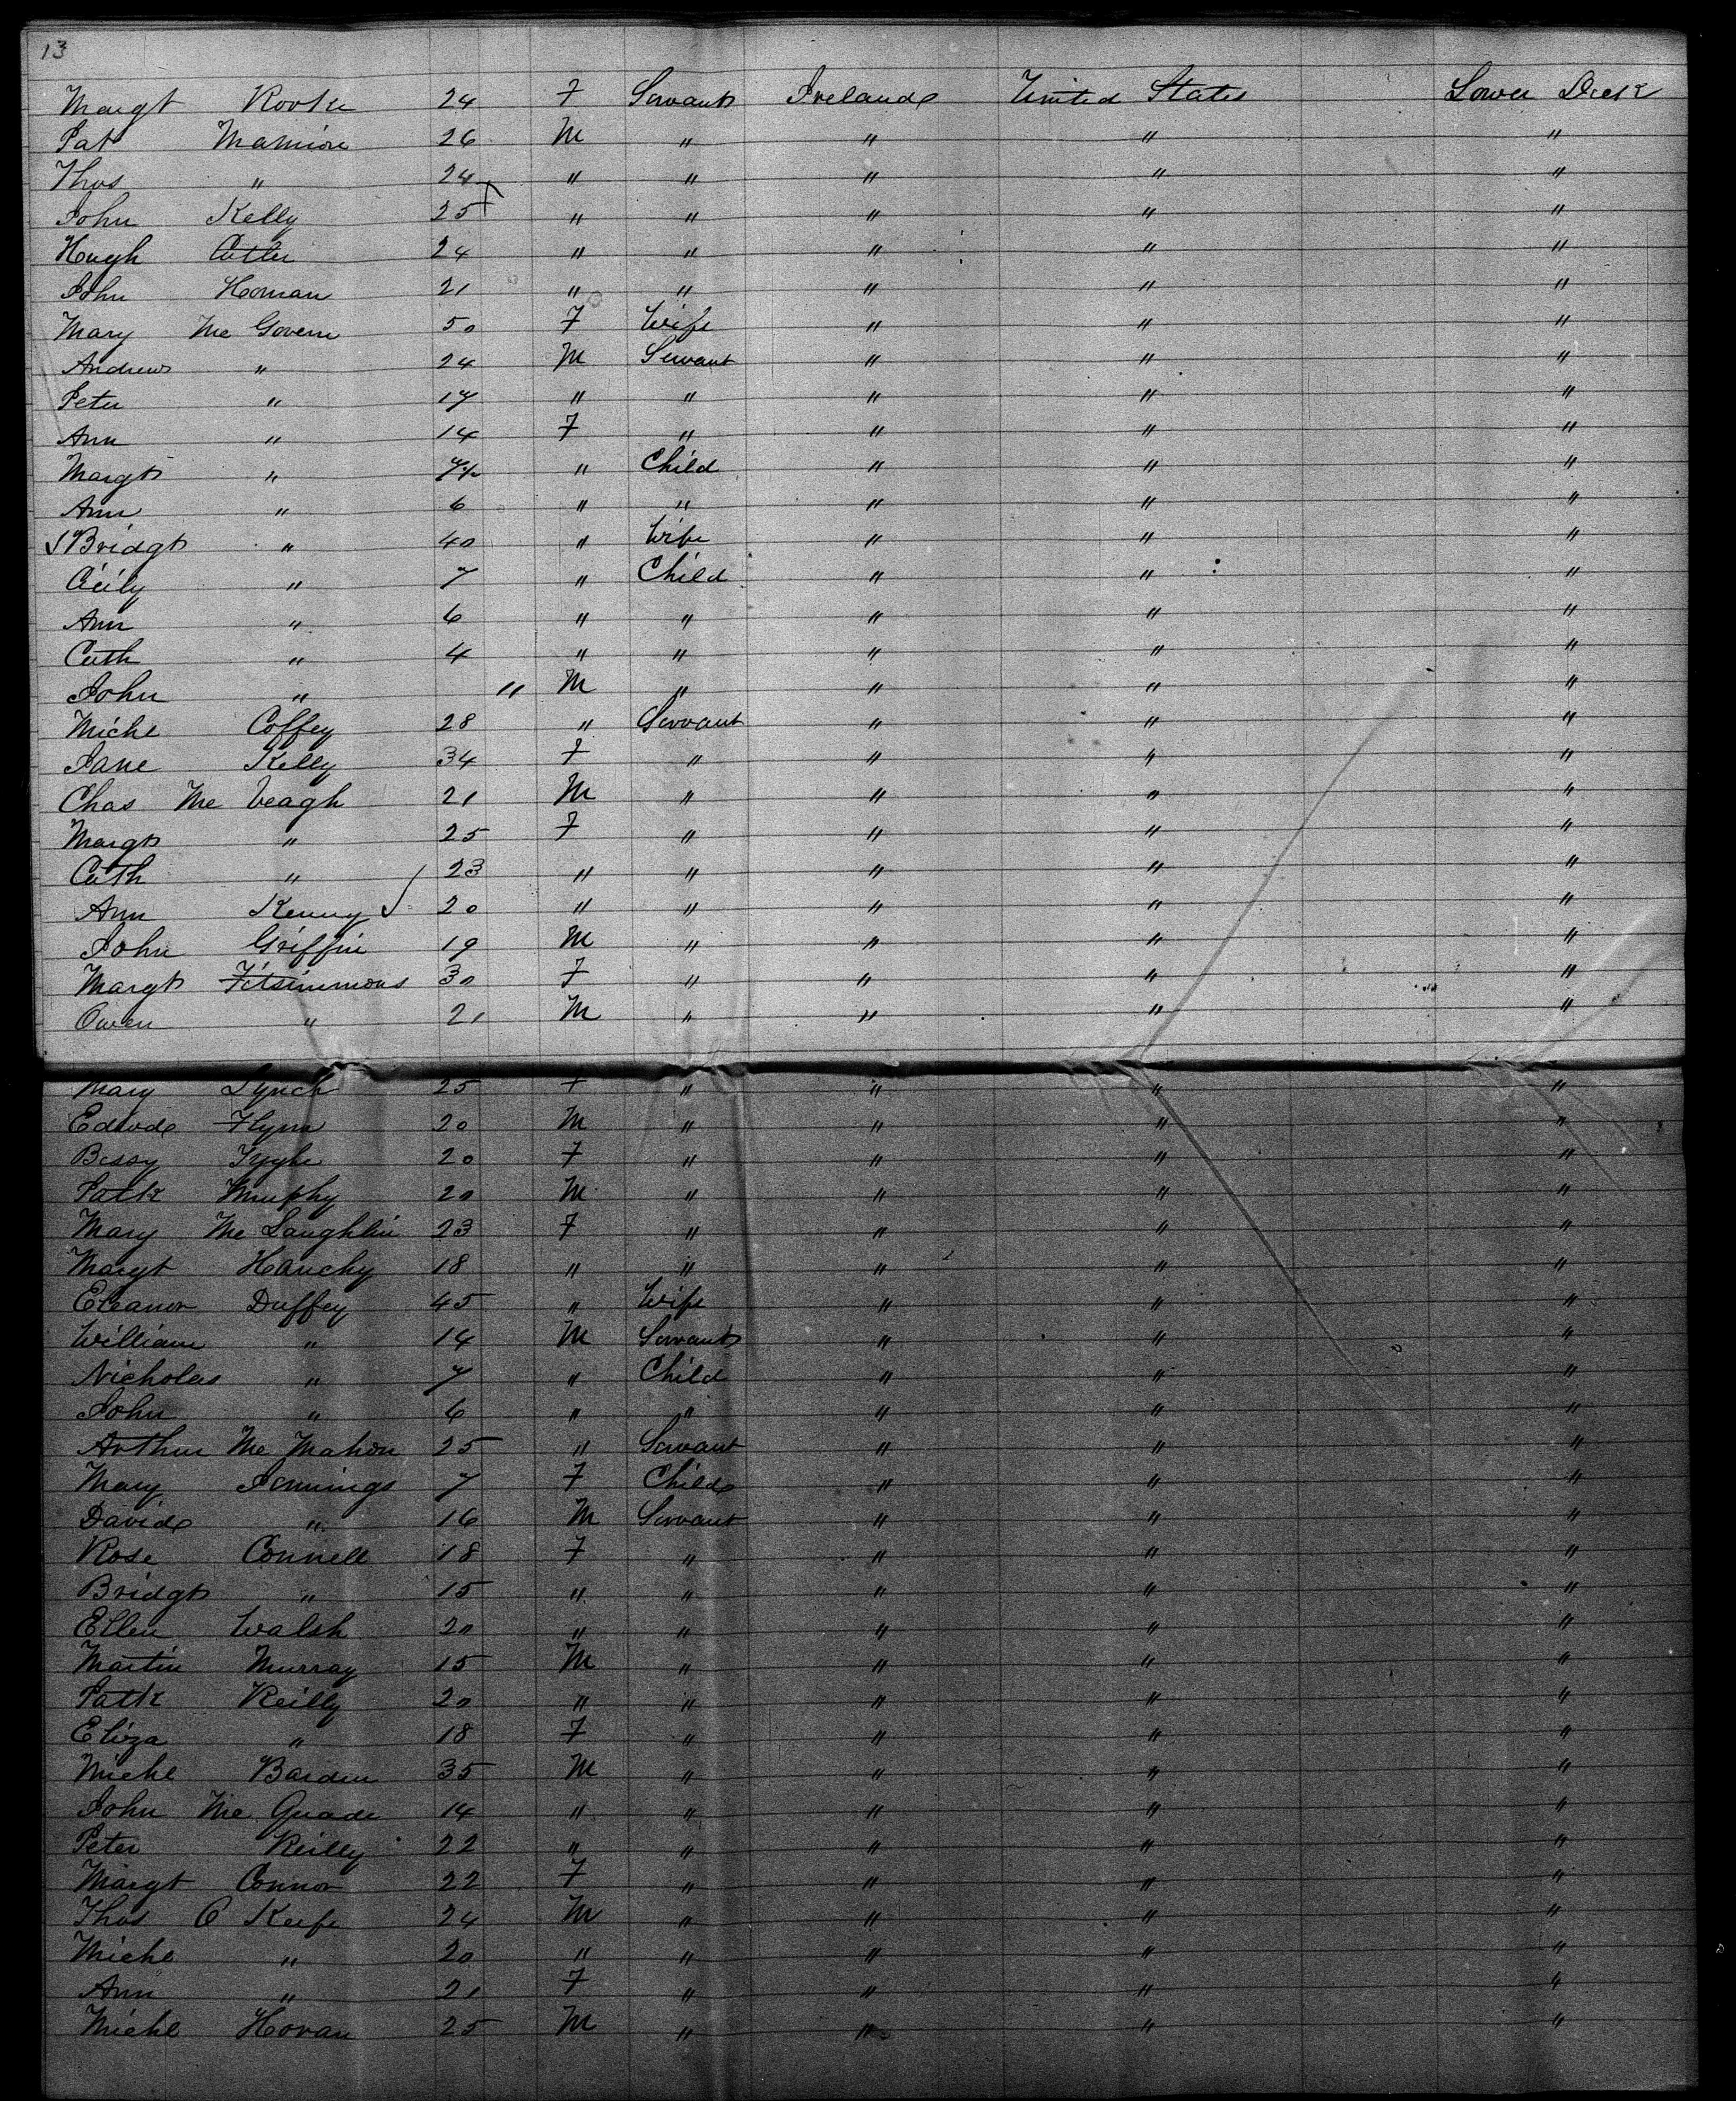 13
Margt Rooke 24 F Servant Ireland United States Lower Deck
Pat Mannion 26 M " " " "
Thos " 24 " " " " "
John Kelly 25 " " " " "
Hugh Cutler 24 " " " " "
John Homan 21 " " " " "
Mary Mc Govern 50 F Wife " " "
Andrew " 24 M Servant " " "
Peter " 17 " " " " "
Ann " 14 F " " " "
Margt " " Child " " "
Ann " 6 " " " " "
Bridgt " 40 " Wife " " "
Cicily " 7 " Child " " "
Ann " 6 " " " " "
Cath " 4 " " " " "
John " " M " " " "
Michl Coffey 28 " Servant " " "
Jane Kelly 34 F " " " "
Chas Mc Veagh 21 M " " " "
Margt " 25 F " " " "
Cath " 23 " " " " "
Ann Kenny 20 " " " " "
John Griffin 19 M " " " "
Margt Fitsimmons 30 F " " " "
Owen " 21 M " " " "
Mary Lynch 25 F " " " "
Edwd Flynn 20 M " " " "
Bessy Tyghe 20 F " " " "
Patk Murphy 20 M " " " "
Mary Mc Laughlin 23 F " " " "
Margt Hanchy 18 " " " " "
Eleanor Duffey 45 " Wife " " "
William " 14 M Servant " " "
Nicholas " 7 " Child " " "
John " 6 " " " " "
Arthur Mc Mahon 25 " Servant " " "
Mary Jennings 7 F Child " " "
David " 16 M Servant " " "
Rose Connell 18 F " " " "
Bridgt " 15 " " " " "
Ellen Walsh 20 " " " " "
Martin Murray 15 M " " " "
Patk Reilly 20 " " " " "
Eliza " 18 F " " " "
Michl Barden 35 M " " " "
John Mc Quade 14 " " " " "
Peter Reilly 22 " " " " "
Margt Connor 22 F " " " "
Thos O Keefe 24 M " " " "
Michl " 20 " " " " "
Ann " 21 F " " " "
Michl Horan 25 M " " " "